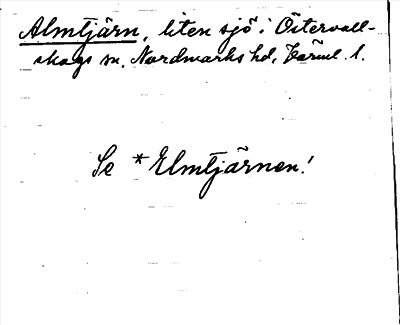 Almtjärn, liten sjö i Östervall-
skogs sn, Nordmarks hd, Värml. l.
Se *Elmtjärnen!